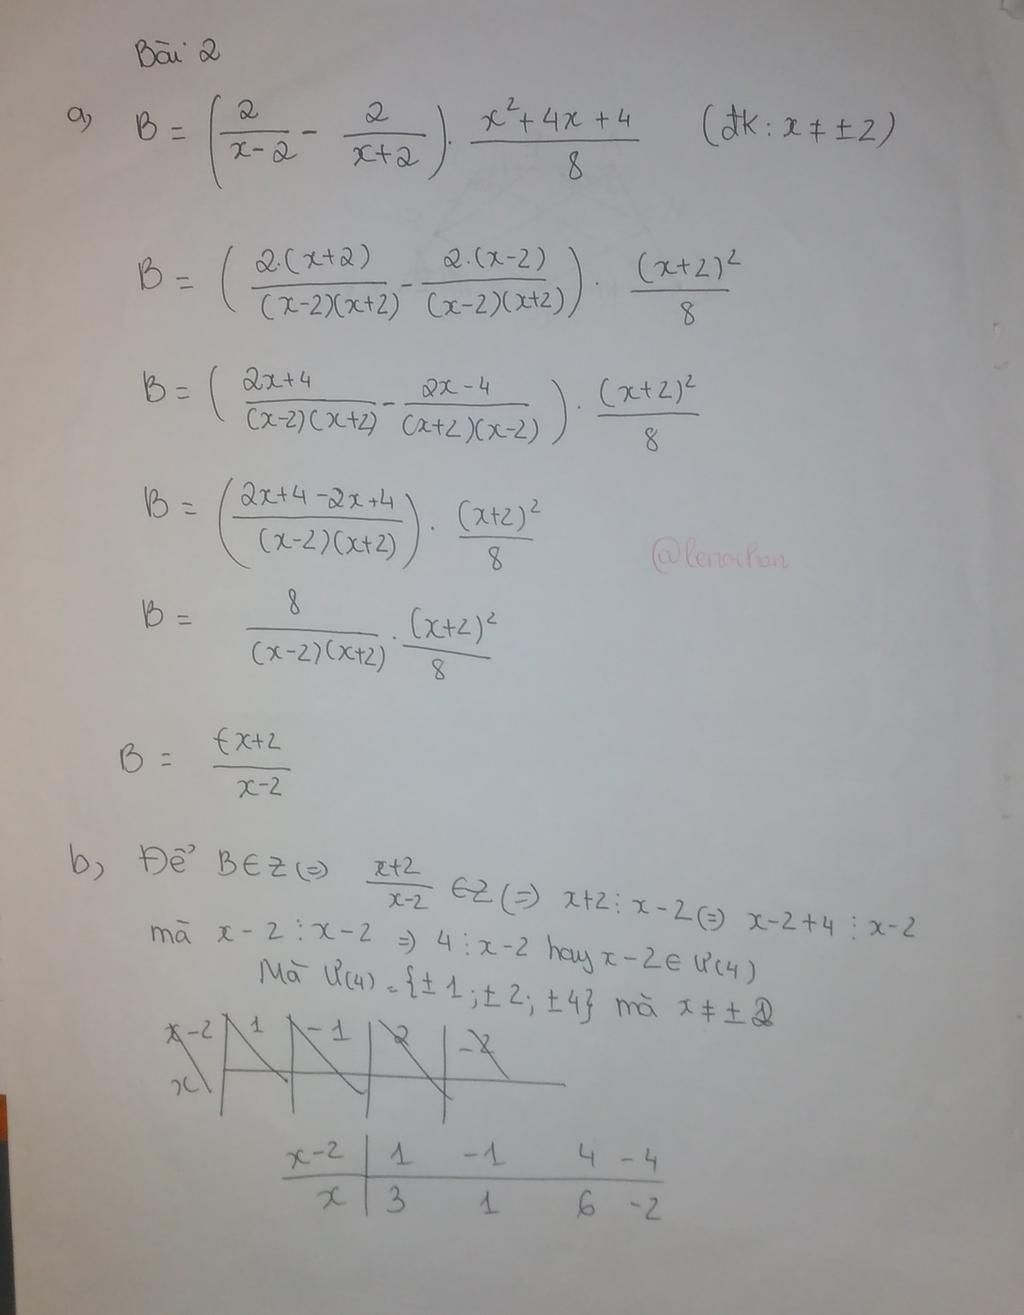 Bài 2
a, B = (2/(x-2) - 2/(x+2)) . (x²+4x+4)/8 (đk: x ≠ ±2)
B = (2.(x+2)/((x-2)(x+2)) - 2.(x-2)/((x-2)(x+2))) . (x+2)²/8
B = ((2x+4)/((x-2)(x+2)) - (2x-4)/((x+2)(x-2))) . (x+2)²/8
B = ((2x+4-2x+4)/((x-2)(x+2))) . (x+2)²/8
@lenachan
B = 8/((x-2)(x+2)) . (x+2)²/8
B = (x+2)/(x-2)
b, Để B∈Z (=) (x+2)/(x-2) ∈Z (=) x+2⋮x-2 (=) x-2+4⋮x-2
mà x-2⋮x-2 => 4⋮x-2 hay x-2∈Ư(4)
Mà Ư(4) = {±1; ±2; ±4} mà x ≠ ±2
x-2 | 1 | -1 | 2 | -2
x
x-2 | 1 -1 4 -4
x | 3 1 6 -2